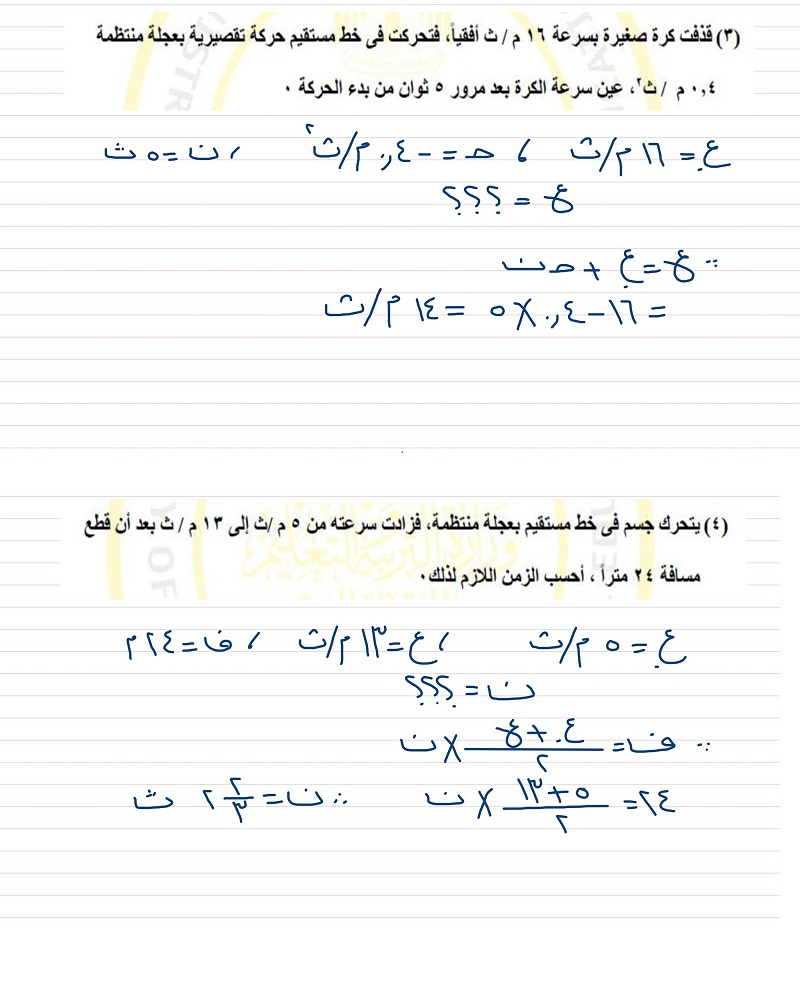 (٣) قذفت كرة صغيرة بسرعة ١٦ م / ث أفقياً، فتحركت فى خط مستقيم حركة تقصيرية بعجلة منتظمة
٠,٤ م / ث٢، عين سرعة الكرة بعد مرور ٥ ثوان من بدء الحركة ٠
ع. = ١٦ م/ث ، حـ = -٠,٤ م/ث٢ ، ن = ٥ ث
ع = ؟؟؟
∵ ع = ع. + حـ ن
= ١٦ - ٠,٤ × ٥ = ١٤ م/ث
(٤) يتحرك جسم فى خط مستقيم بعجلة منتظمة، فزادت سرعته من ٥ م /ث إلى ١٣ م / ث بعد أن قطع
مسافة ٢٤ متراً ، أحسب الزمن اللازم لذلك٠
ع. = ٥ م/ث ، ع = ١٣ م/ث ، ف = ٢٤ م
ن = ؟؟؟
∵ ف = (ع. + ع)/٢ × ن
٢٤ = (٥ + ١٣)/٢ × ن ∴ ن = ٢ ٢/٣ ث